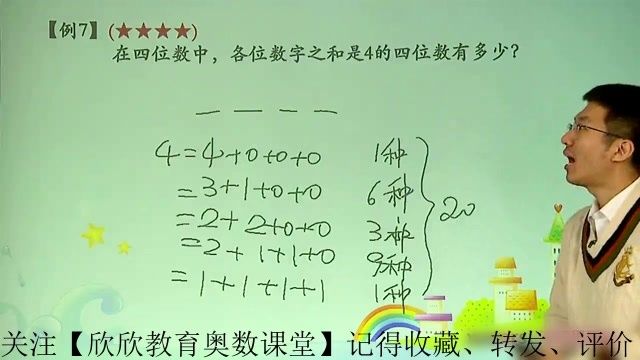 【例7】(★★★★)
在四位数中，各位数字之和是4的四位数有多少？
4=4+0+0+0 1种
=3+1+0+0 6种
=2+2+0+0 3种
=2+1+1+0 9种
=1+1+1+1 1种
20
关注【欣欣教育奥数课堂】记得收藏、转发、评价